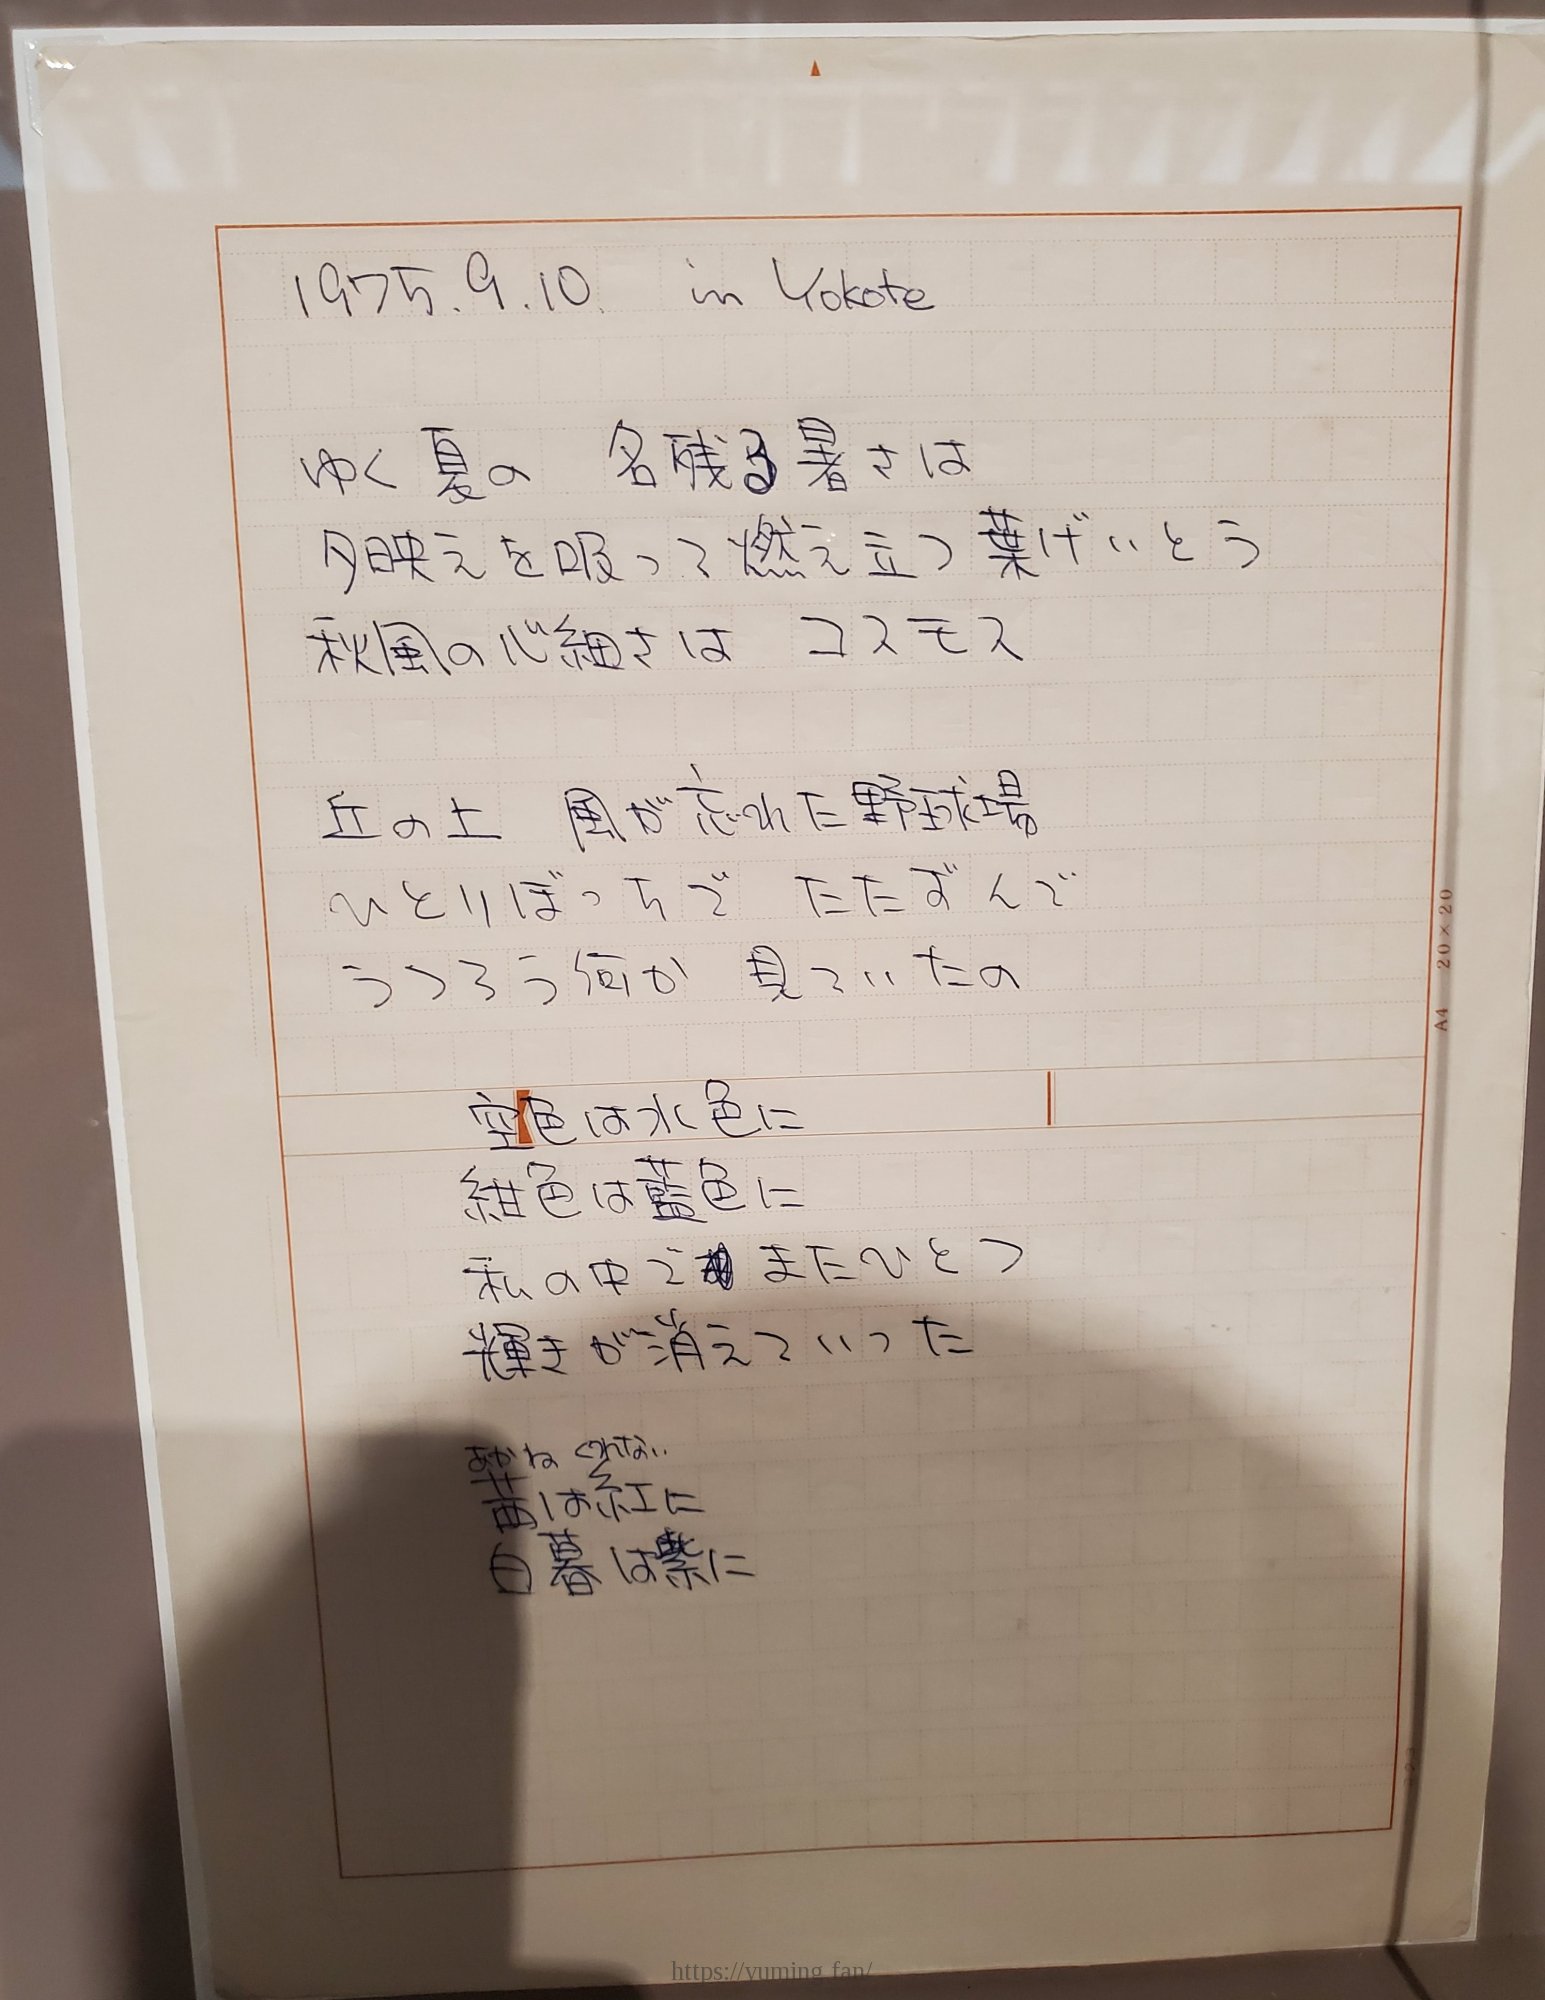 1975.9.10. in Yokote
ゆく夏の 名残る暑さは
夕映えを吸って燃え立つ葉げいとう
秋風の心細さは コスモス
丘の上 風が忘れた野球場
ひとりぼっちで たたずんで
うつろう何か 見ていたの
空色は水色に
紺色は藍色に
私の中で またひとつ
輝きが消えていった
あかね くれない
茜は紅に
日暮は紫に
A4 20×20
https://yuming.fan/